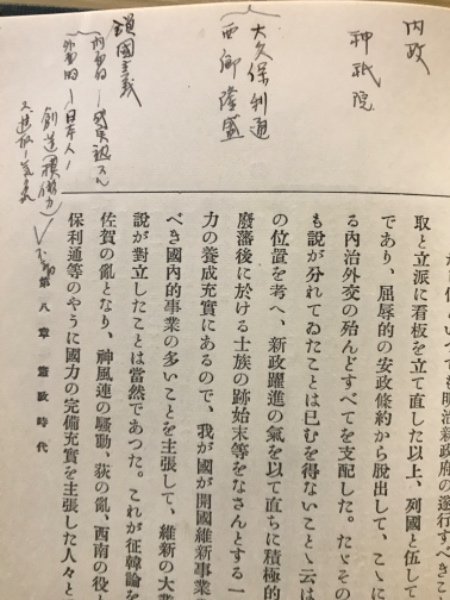 内政
神祇院
大久保利通
西郷隆盛
鎖國主義
内面的ー
外面的ー日本人ノ
創造(模倣力)
取と立派に看板を立て直した以上、列國と伍して
であり、屈辱的の安政條約から脱出して、こゝに
る內治外交の殆んどすべてを支配した。たゞその
も說が分れてゐたことは已むを得ないことゝ云は
の位置を考へ、新政躍進の氣を以て直ちに積極的
廢藩後に於ける士族の跡始末等をなさんとする一
力の養成充實にあるので、我が國が開國維新事業
べき國內的事業の多いことを主張して、維新の大業
說が對立したことは當然であつた。これが征韓論を
佐賀の亂となり、神風連の騷動、萩の亂、西南の役と
保利通等のやうに國力の完備充實を主張した人々と
第八章 憲政時代